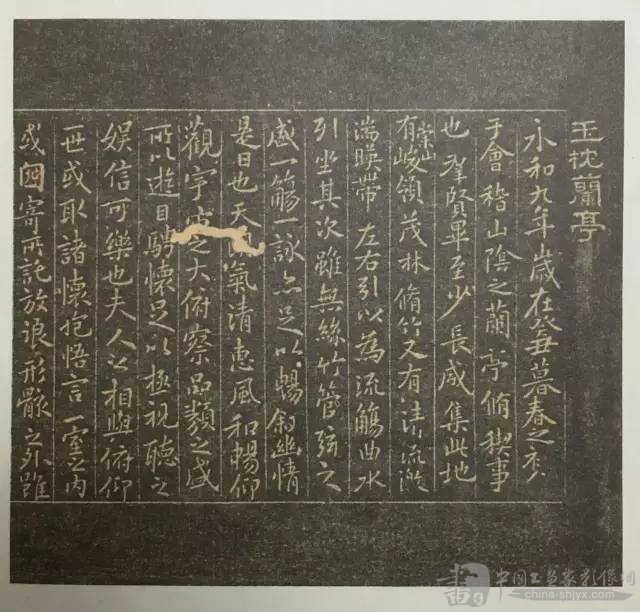 玉枕蘭亭
永和九年歲在癸丑暮春之初
于會稽山陰之蘭亭脩稧事
也羣賢畢至少長咸集此地
有崇山峻領茂林脩竹又有清流激
湍暎帶左右引以為流觴曲水
列坐其次雖無絲竹管弦之
盛一觴一詠亦足以暢叙幽情
是日也天氣清惠風和暢仰
觀宇宙之大俯察品類之盛
所以遊目騁懷足以極視聽之
娛信可樂也夫人之相與俯仰
一世或取諸懷抱悟言一室之內
或因寄所託放浪形骸之外雖
中国书画家影像網
china-shjyx.com